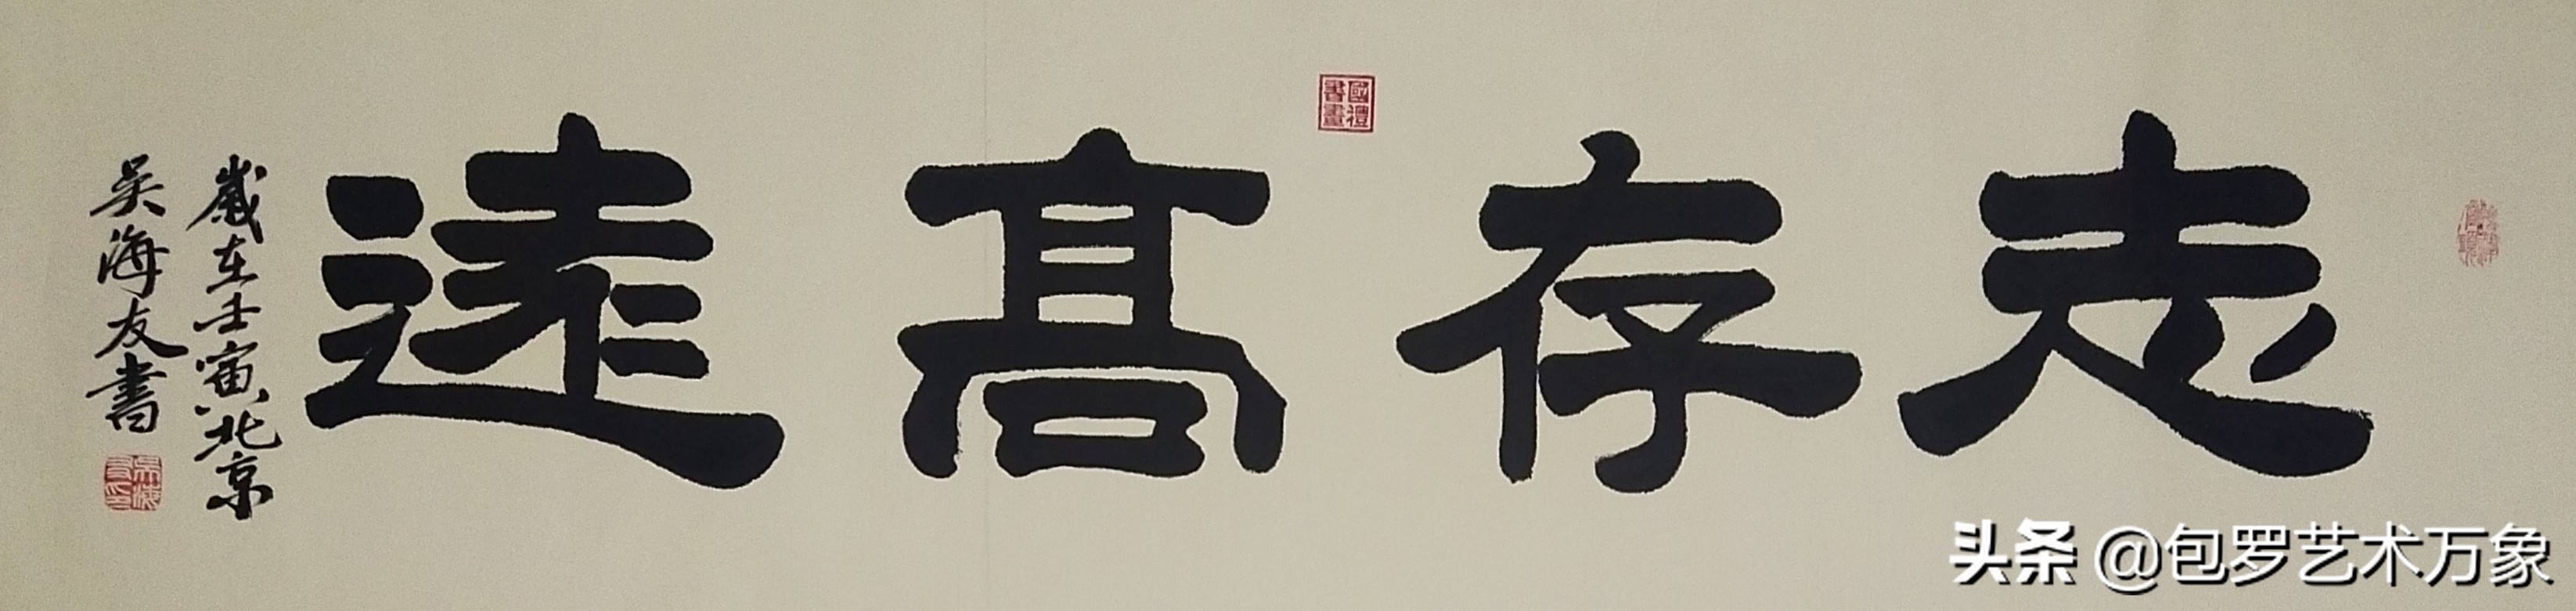 志存髙遠
國禮書畫
歲在壬寅北京
吴海友書
吴海友印
头条 @包罗艺术万象